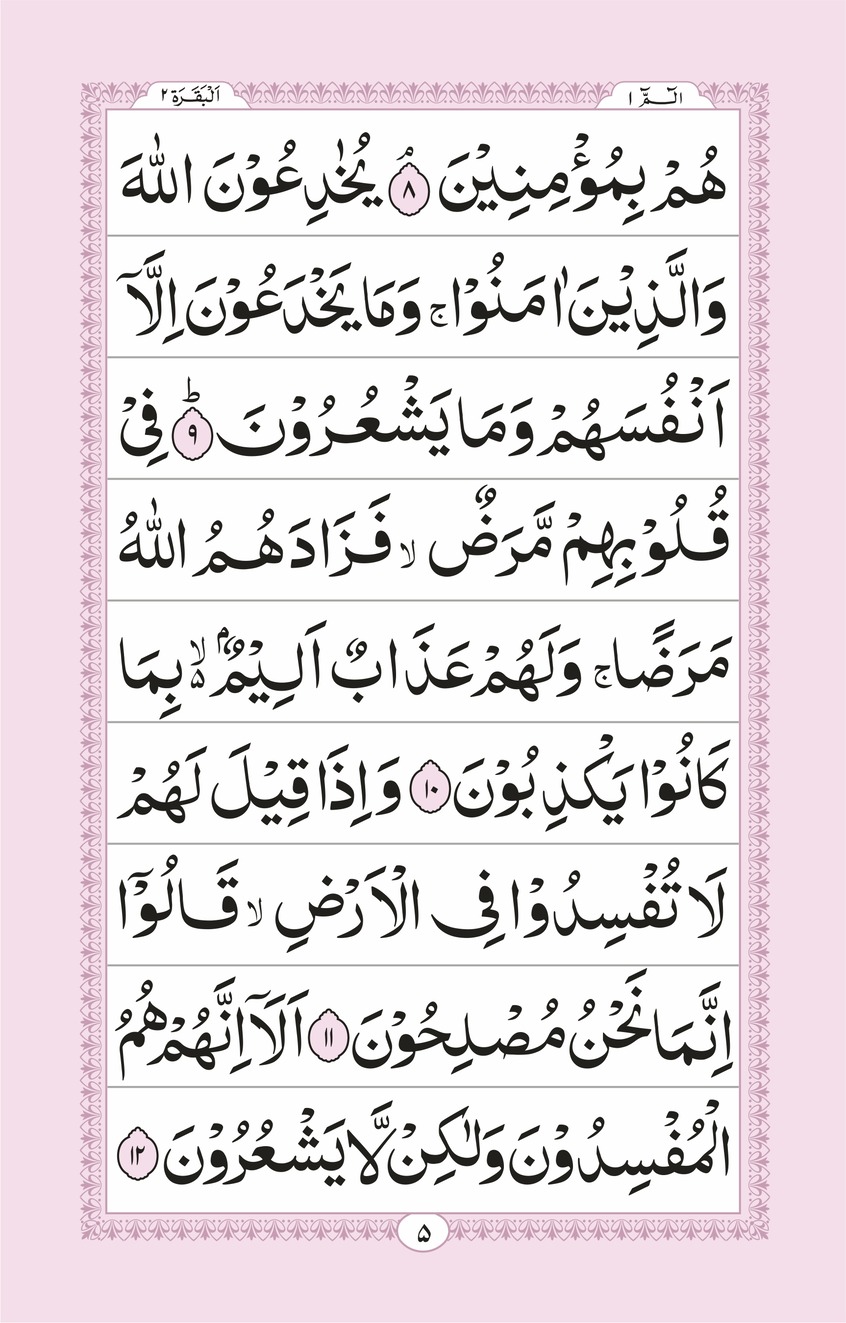 الٓـمّٓ ١
اَلْبَقَرَة ٢
هُمْ بِمُؤْمِنِيْنَ ۘ‏﴿٨﴾ يُخٰدِعُوْنَ اللّٰهَ
وَالَّذِيْنَ اٰمَنُوْا ۚ وَمَا يَخْدَعُوْنَ اِلَّاۤ
اَنْفُسَهُمْ وَمَا يَشْعُرُوْنَ ؕ‏﴿٩﴾ فِىْ
قُلُوْبِهِمْ مَّرَضٌ ۙ فَزَادَهُمُ اللّٰهُ
مَرَضًا ۚ وَلَهُمْ عَذَابٌ اَلِيْمٌۢ ۙ۬ بِمَا
كَانُوْا يَكْذِبُوْنَ ﴿١٠﴾ وَاِذَا قِيْلَ لَهُمْ
لَا تُفْسِدُوْا فِى الْاَرْضِ ۙ قَالُوْۤا
اِنَّمَا نَحْنُ مُصْلِحُوْنَ ﴿١١﴾ اَلَاۤ اِنَّهُمْ هُمُ
الْمُفْسِدُوْنَ وَلٰكِنْ لَّا يَشْعُرُوْنَ ﴿١٢﴾
۵